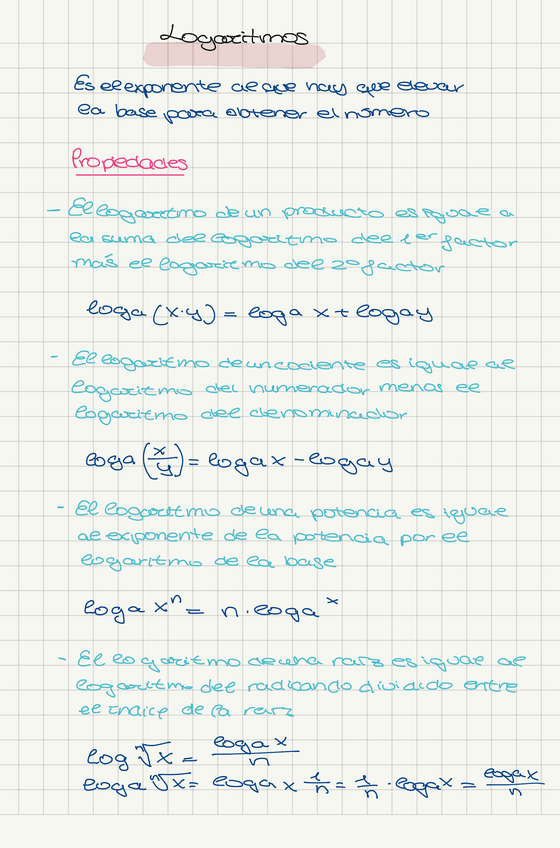 Logaritmos
Es el exponente al que hay que elevar
la base para obtener el número
Propiedades
- El logaritmo de un producto es igual a
la suma del logaritmo del 1er factor
más el logaritmo del 2º factor
loga (x·y) = loga x + logay
- El logaritmo de un cociente es igual al
logaritmo del numerador menos el
logaritmo del denominador
loga (x/y) = logax - logay
- El logaritmo de una potencia es igual
al exponente de la potencia por el
logaritmo de la base
loga xⁿ = n·loga ˣ
- El logaritmo de una raíz es igual al
logaritmo del radicando dividido entre
el índice de la raíz
log ⁿ√x = loga x / n
loga ⁿ√x = loga x 1/n = 1/n · logax = logax / n